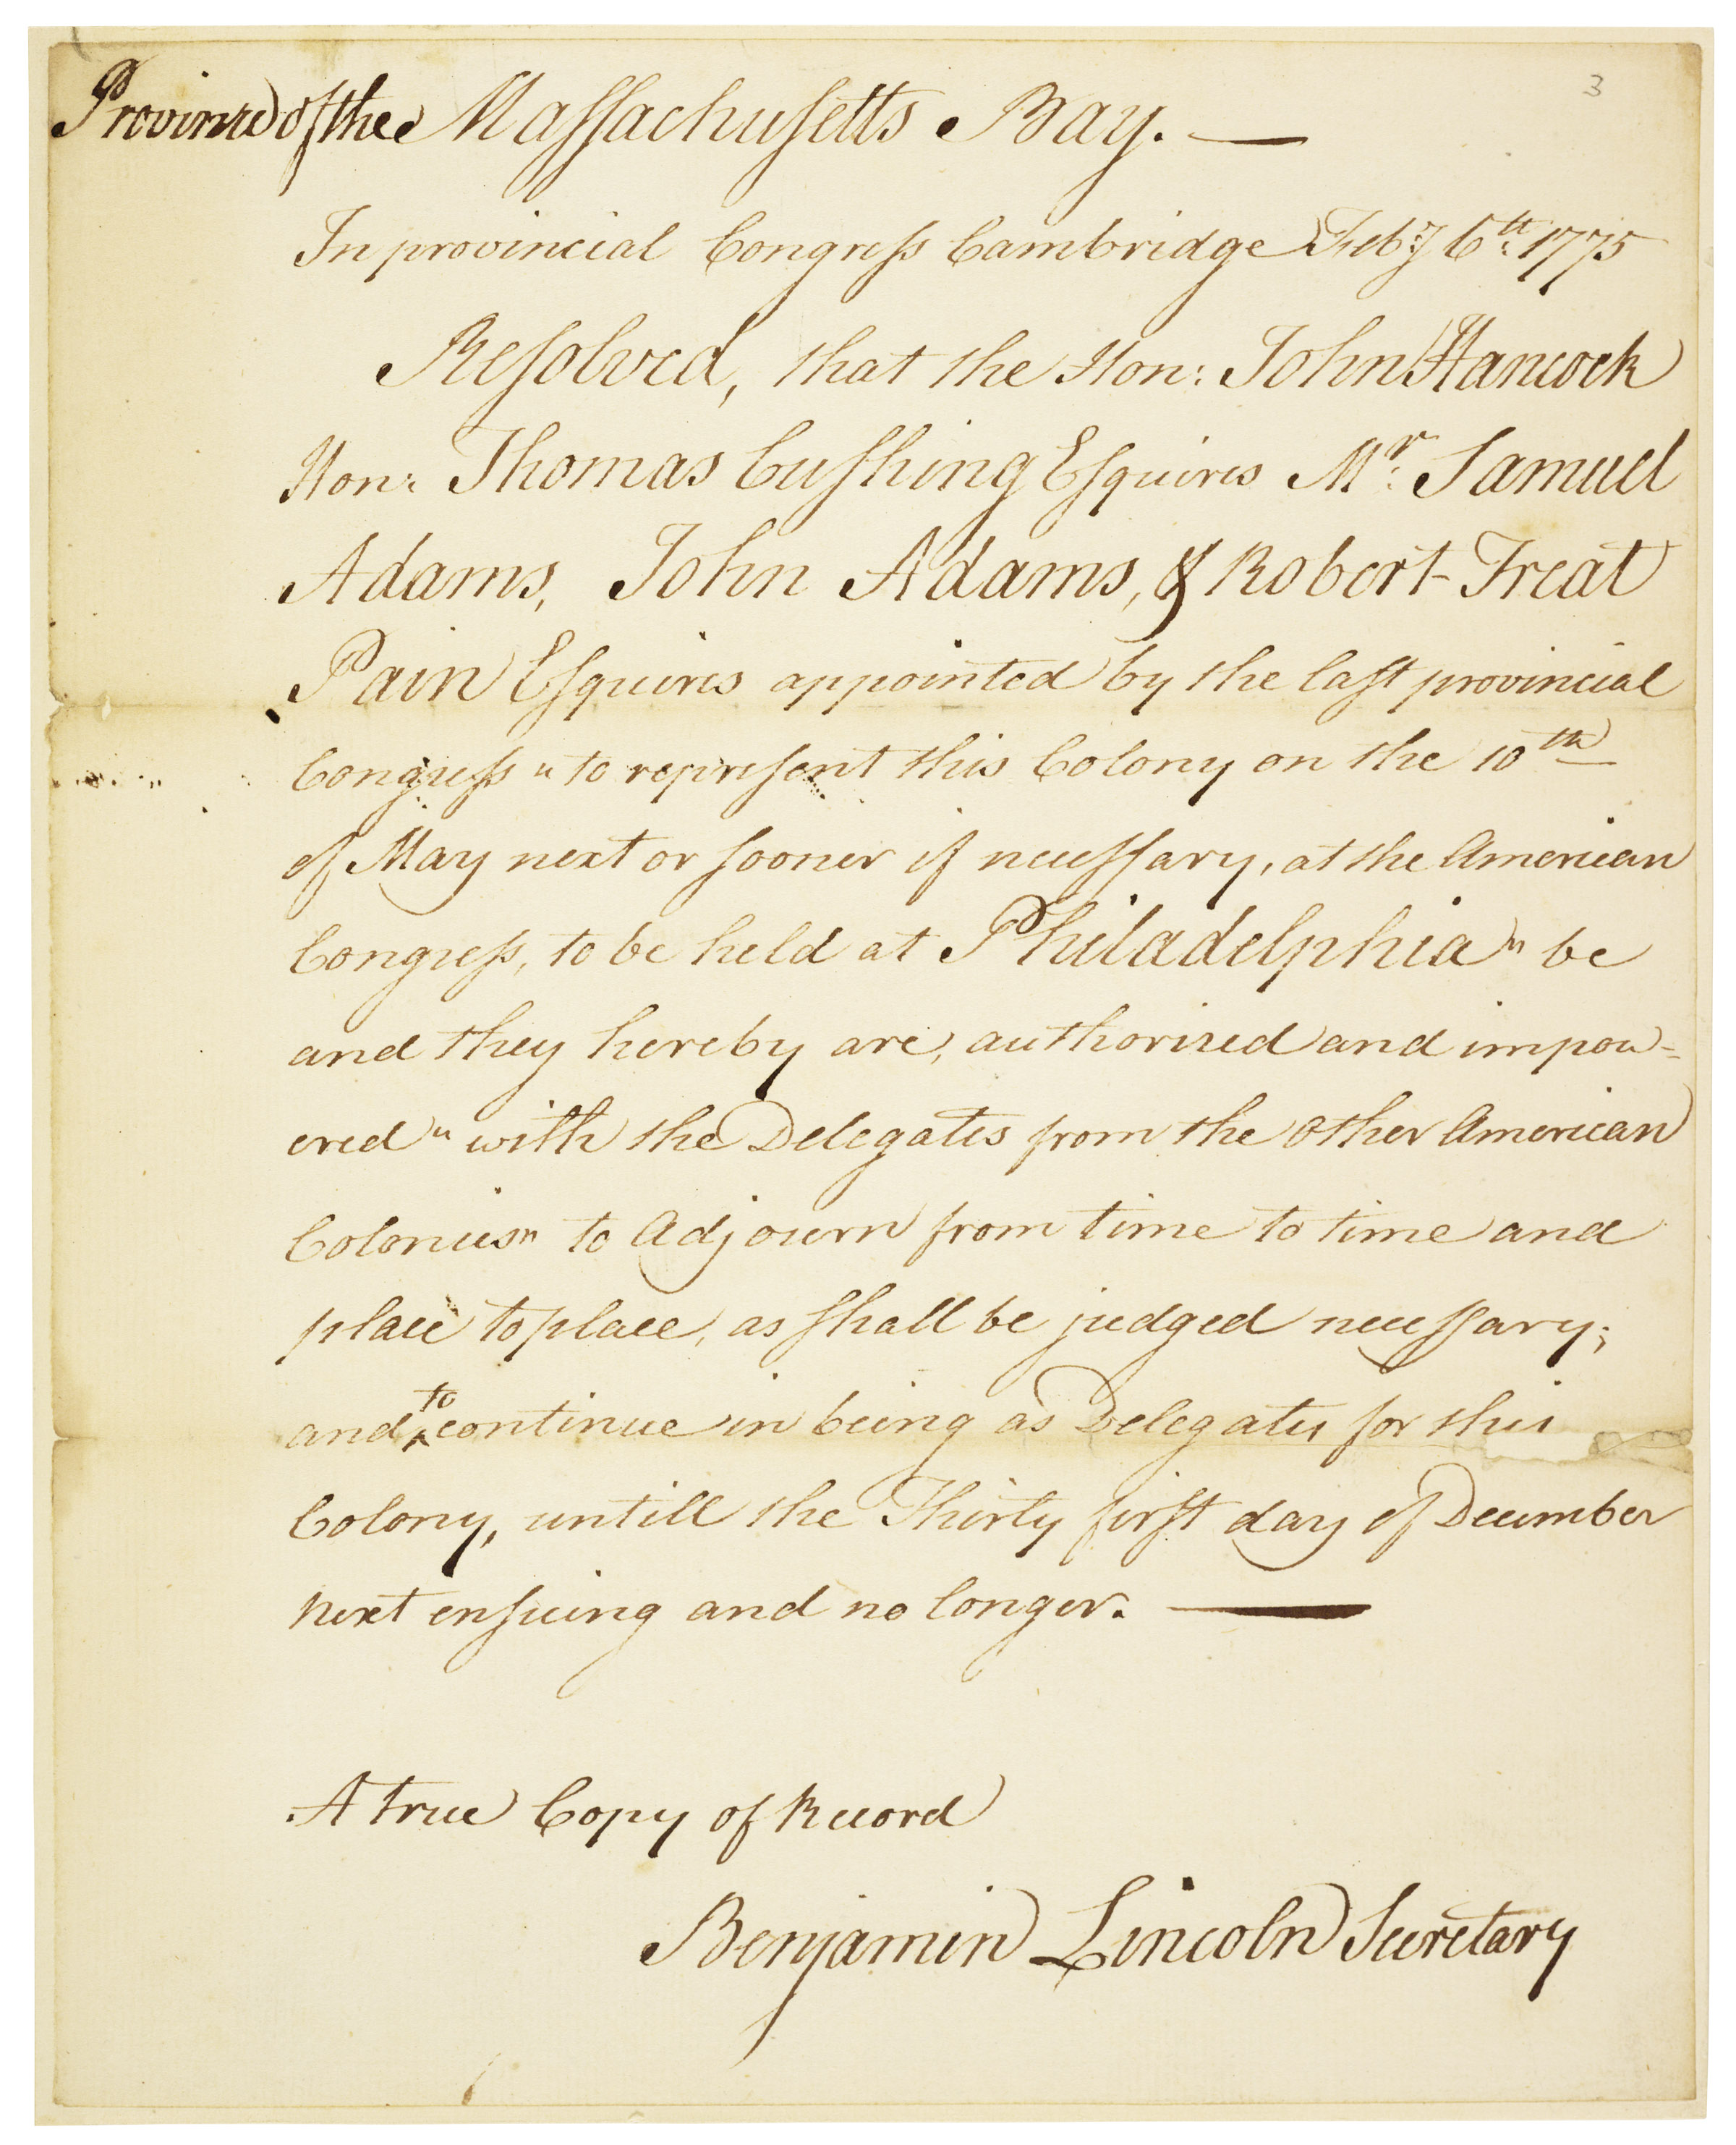 3
Province of the Massachusetts Bay. —
In provincial Congress Cambridge Feby 6th. 1775
Resolved, that the Hon: John Hancock
Hon: Thomas Cushing Esquires Mr. Samuel
Adams, John Adams, & Robert Treat
Pain Esquires appointed by the last provincial
Congress " to represent this Colony on the 10th
of May next or sooner if necessary, at the American
Congress, to be held at Philadelphia" be
and they hereby are, authorized and impow-
ered " with the Delegates from the other American
Colonies" to Adjourn from time to time and
place to place, as shall be judged necessary;
and to continue in being as Delegates for this
Colony, untill the Thirty first day of December
next ensuing and no longer. —
A true Copy of Record
Benjamin Lincoln Secretary